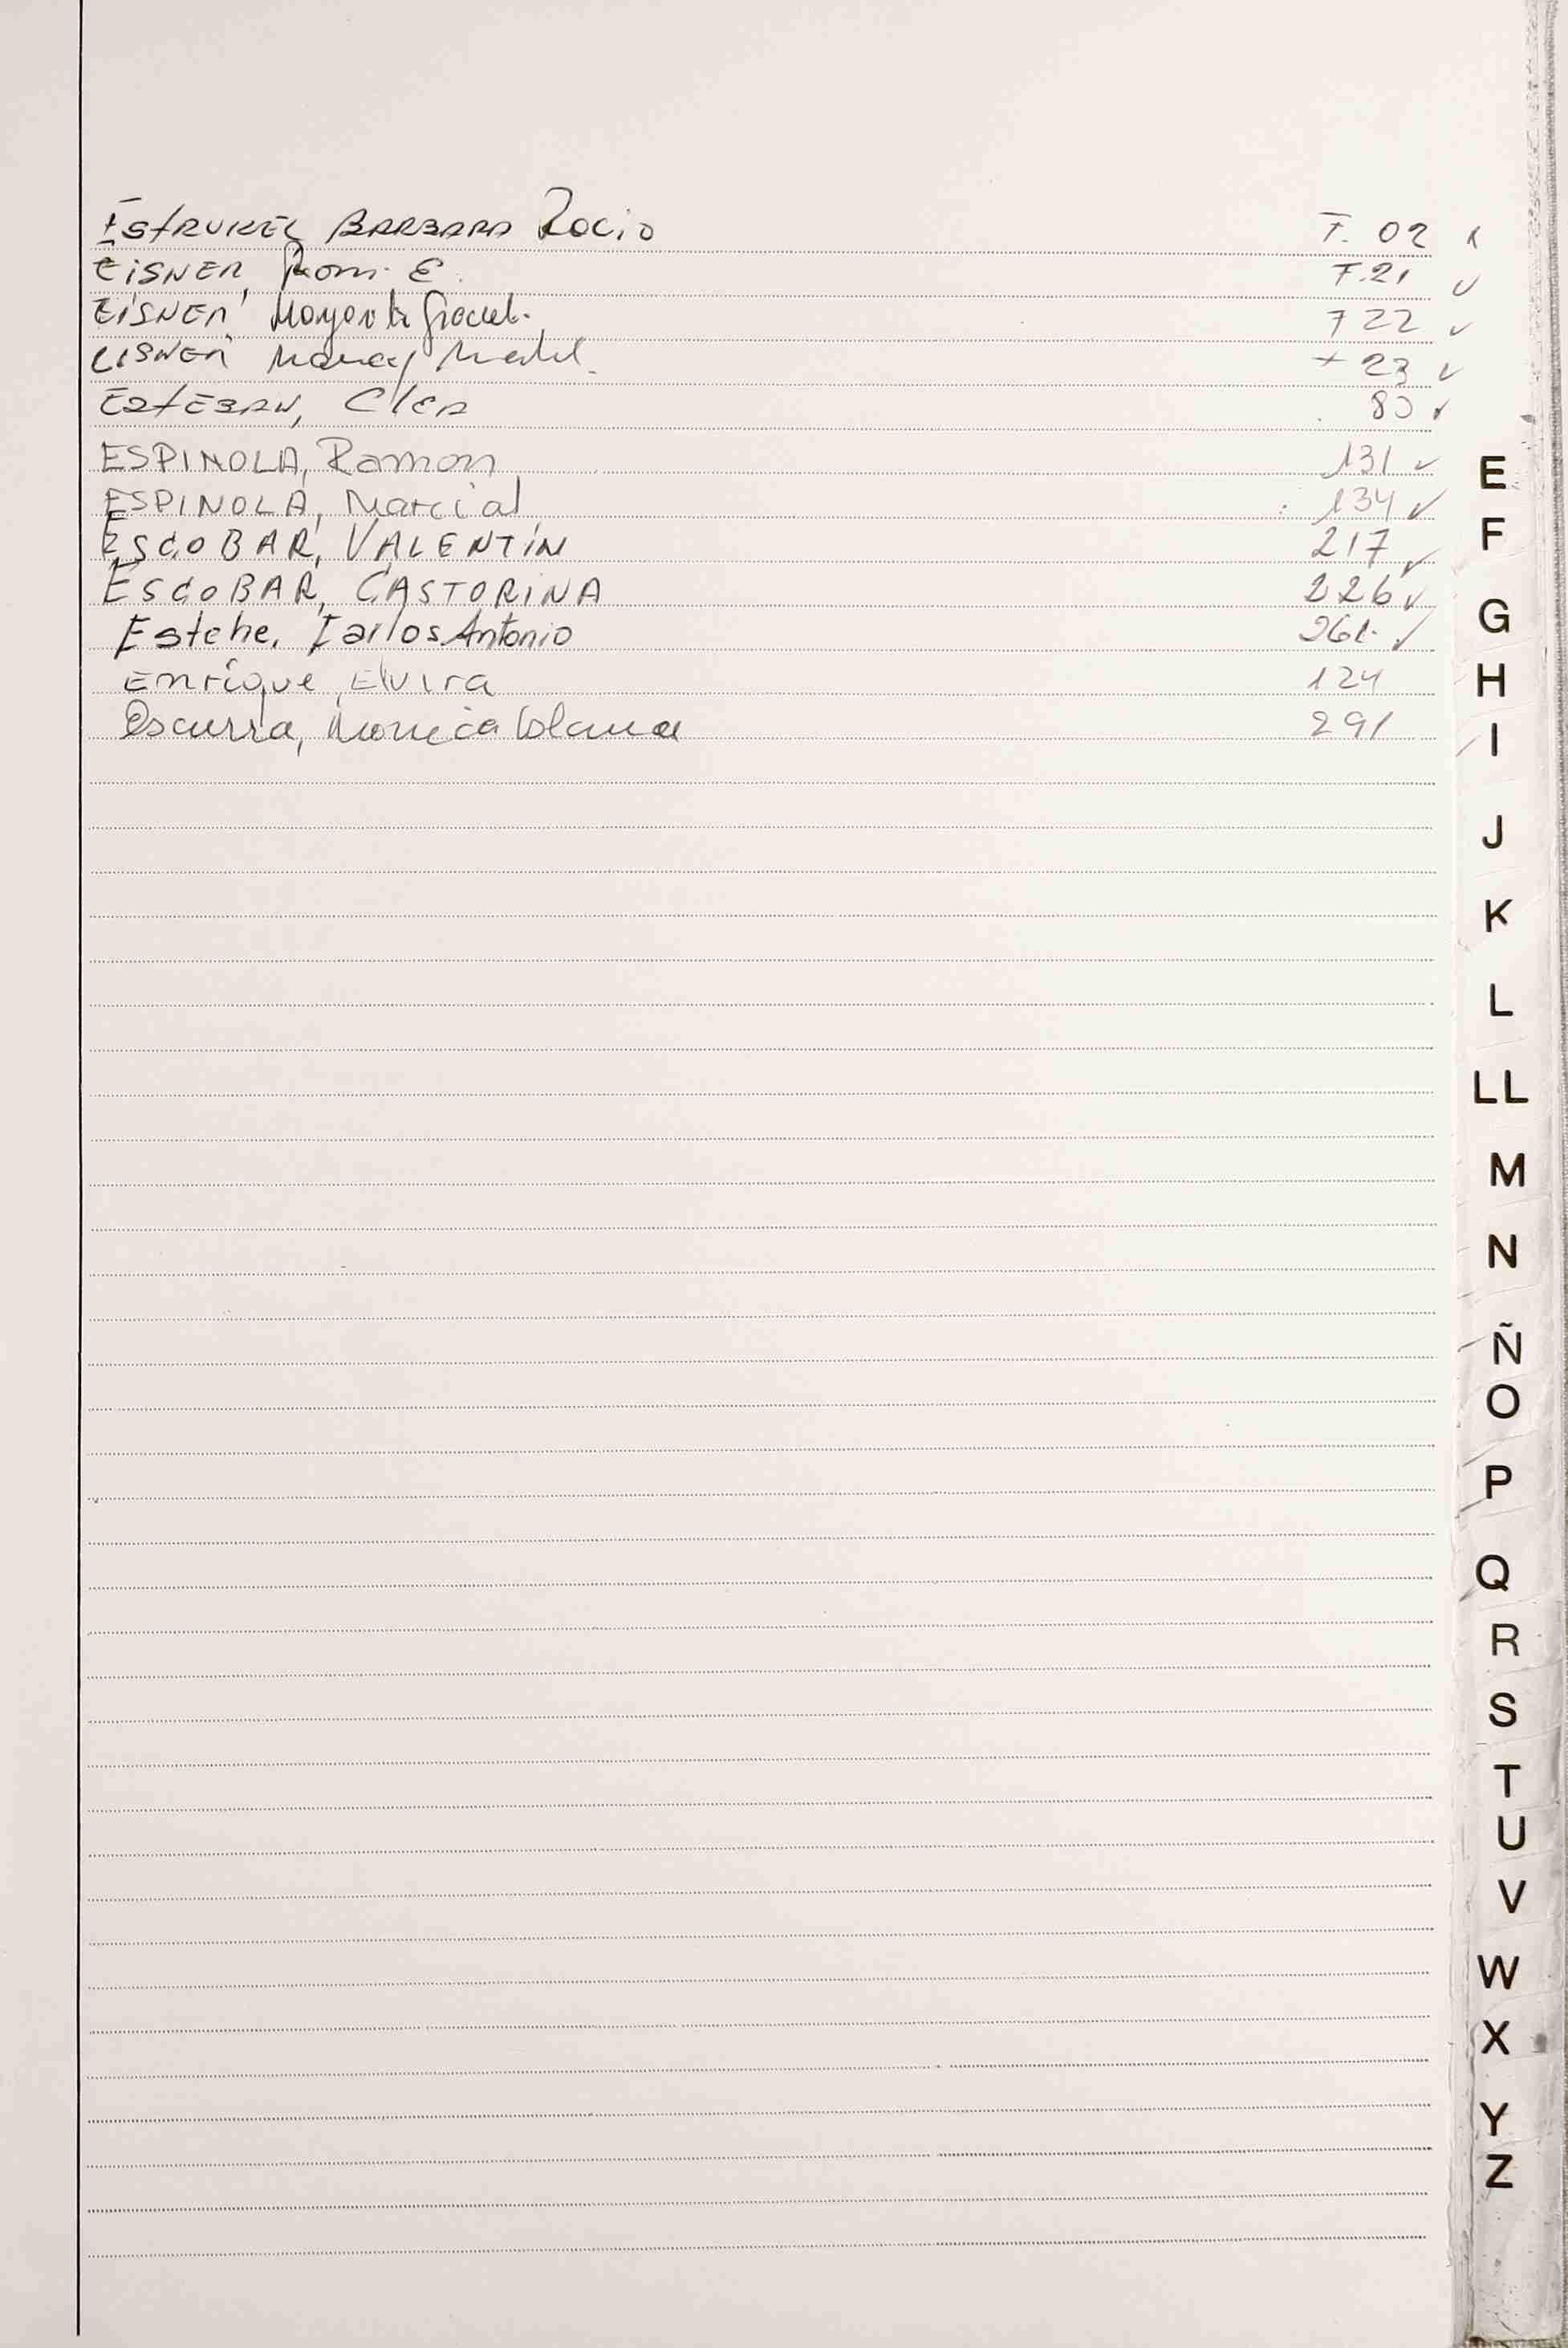 Estrukel Barbara Rocio F. 02
EISNER, Rom. E. F.21
EISNER F 22
EISNER Nancy F 23
Esteban, Clea 80 ✓
ESPINOLA, Ramon 131 ✓
ESPINOLA, Marcial 134 ✓
ESCOBAR, VALENTÍN 217 ✓
ESCOBAR, CASTORINA 226 ✓
Esteche, Carlos Antonio 261. ✓
Enrique, Elvira 124
Escurra, Monica 291
E
F
G
H
I
J
K
L
LL
M
N
Ñ
O
P
Q
R
S
T
U
V
W
X
Y
Z